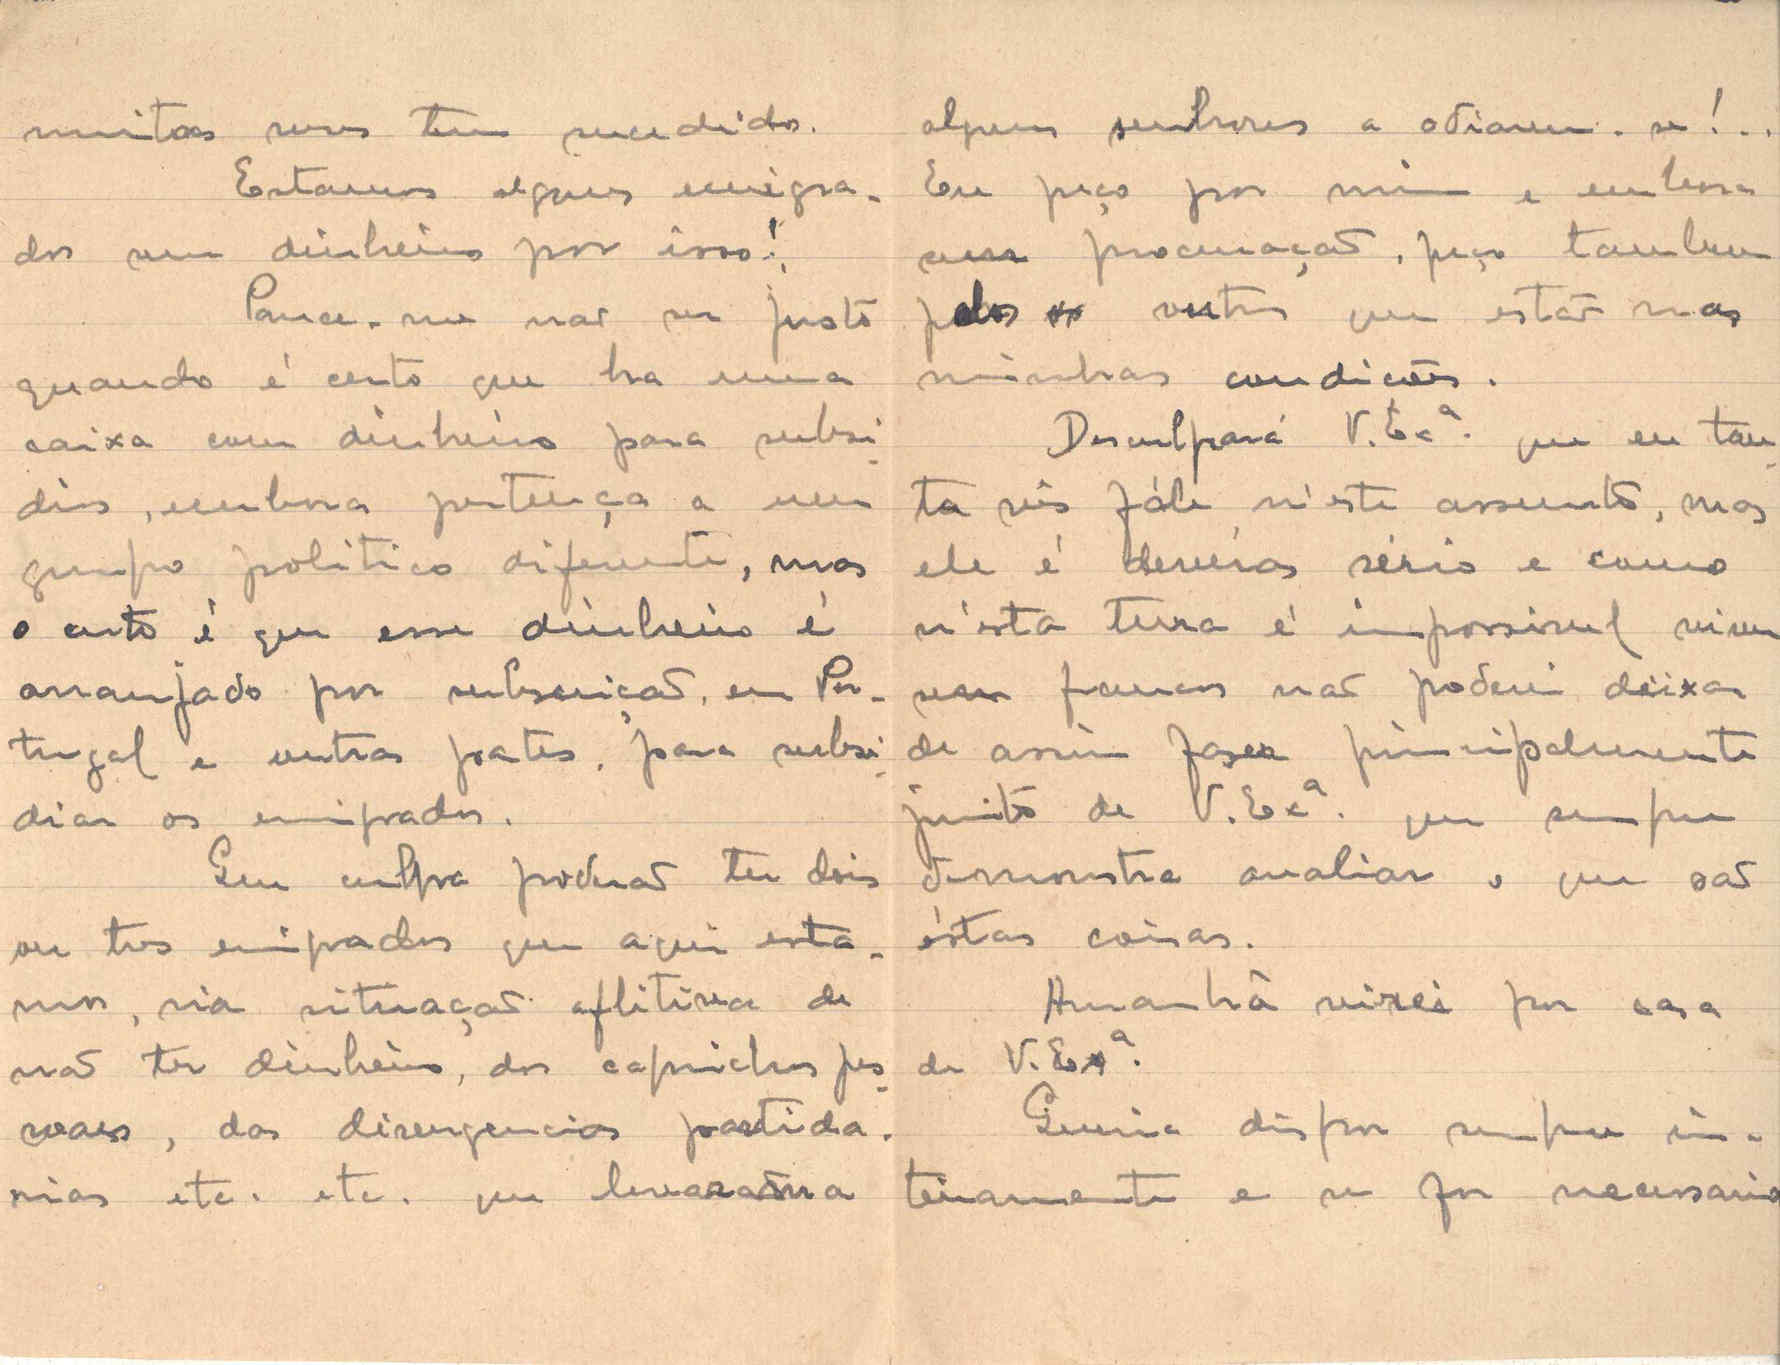 muitas veses tem sucedido.
Estamos alguns emigra-
dos sem dinheiro por isso!
Parece-me não ser justo
quando é certo que ha uma
caixa com dinheiro para subsi-
dios, embora pertença a um
grupo politico diferente, mas
o certo é que esse dinheiro é
arranjado por subscrição, em Por-
tugal e outras partes, para subsi-
diar os emigrados.
Que culpa poderão ter dois
ou tres emigrados que aqui esta-
mos, na situação aflitiva de
não ter dinheiro, dos caprichos pes-
soaes, das divergencias partida-
rias etc. etc. que levarão
alguns senhores a odiarem-se!..
Eu peço por mim e embora
sem procuração, peço tambem
pelos outros que estão nas
minhas condicões.
Desculpará V. Exª. que eu tan-
ta vês fále n'este assunto, mas
ele é deveras sério e como
n'esta terra é impossivel viver
sem francos não poderei deixar
de assim faser principalmente
junto de V. Exª. que sempre
demonstra avaliar o que são
éstas coisas.
Amanhã virei por casa
de V. Exª.
Queira dispor sempre in-
teiramente e se for necessario